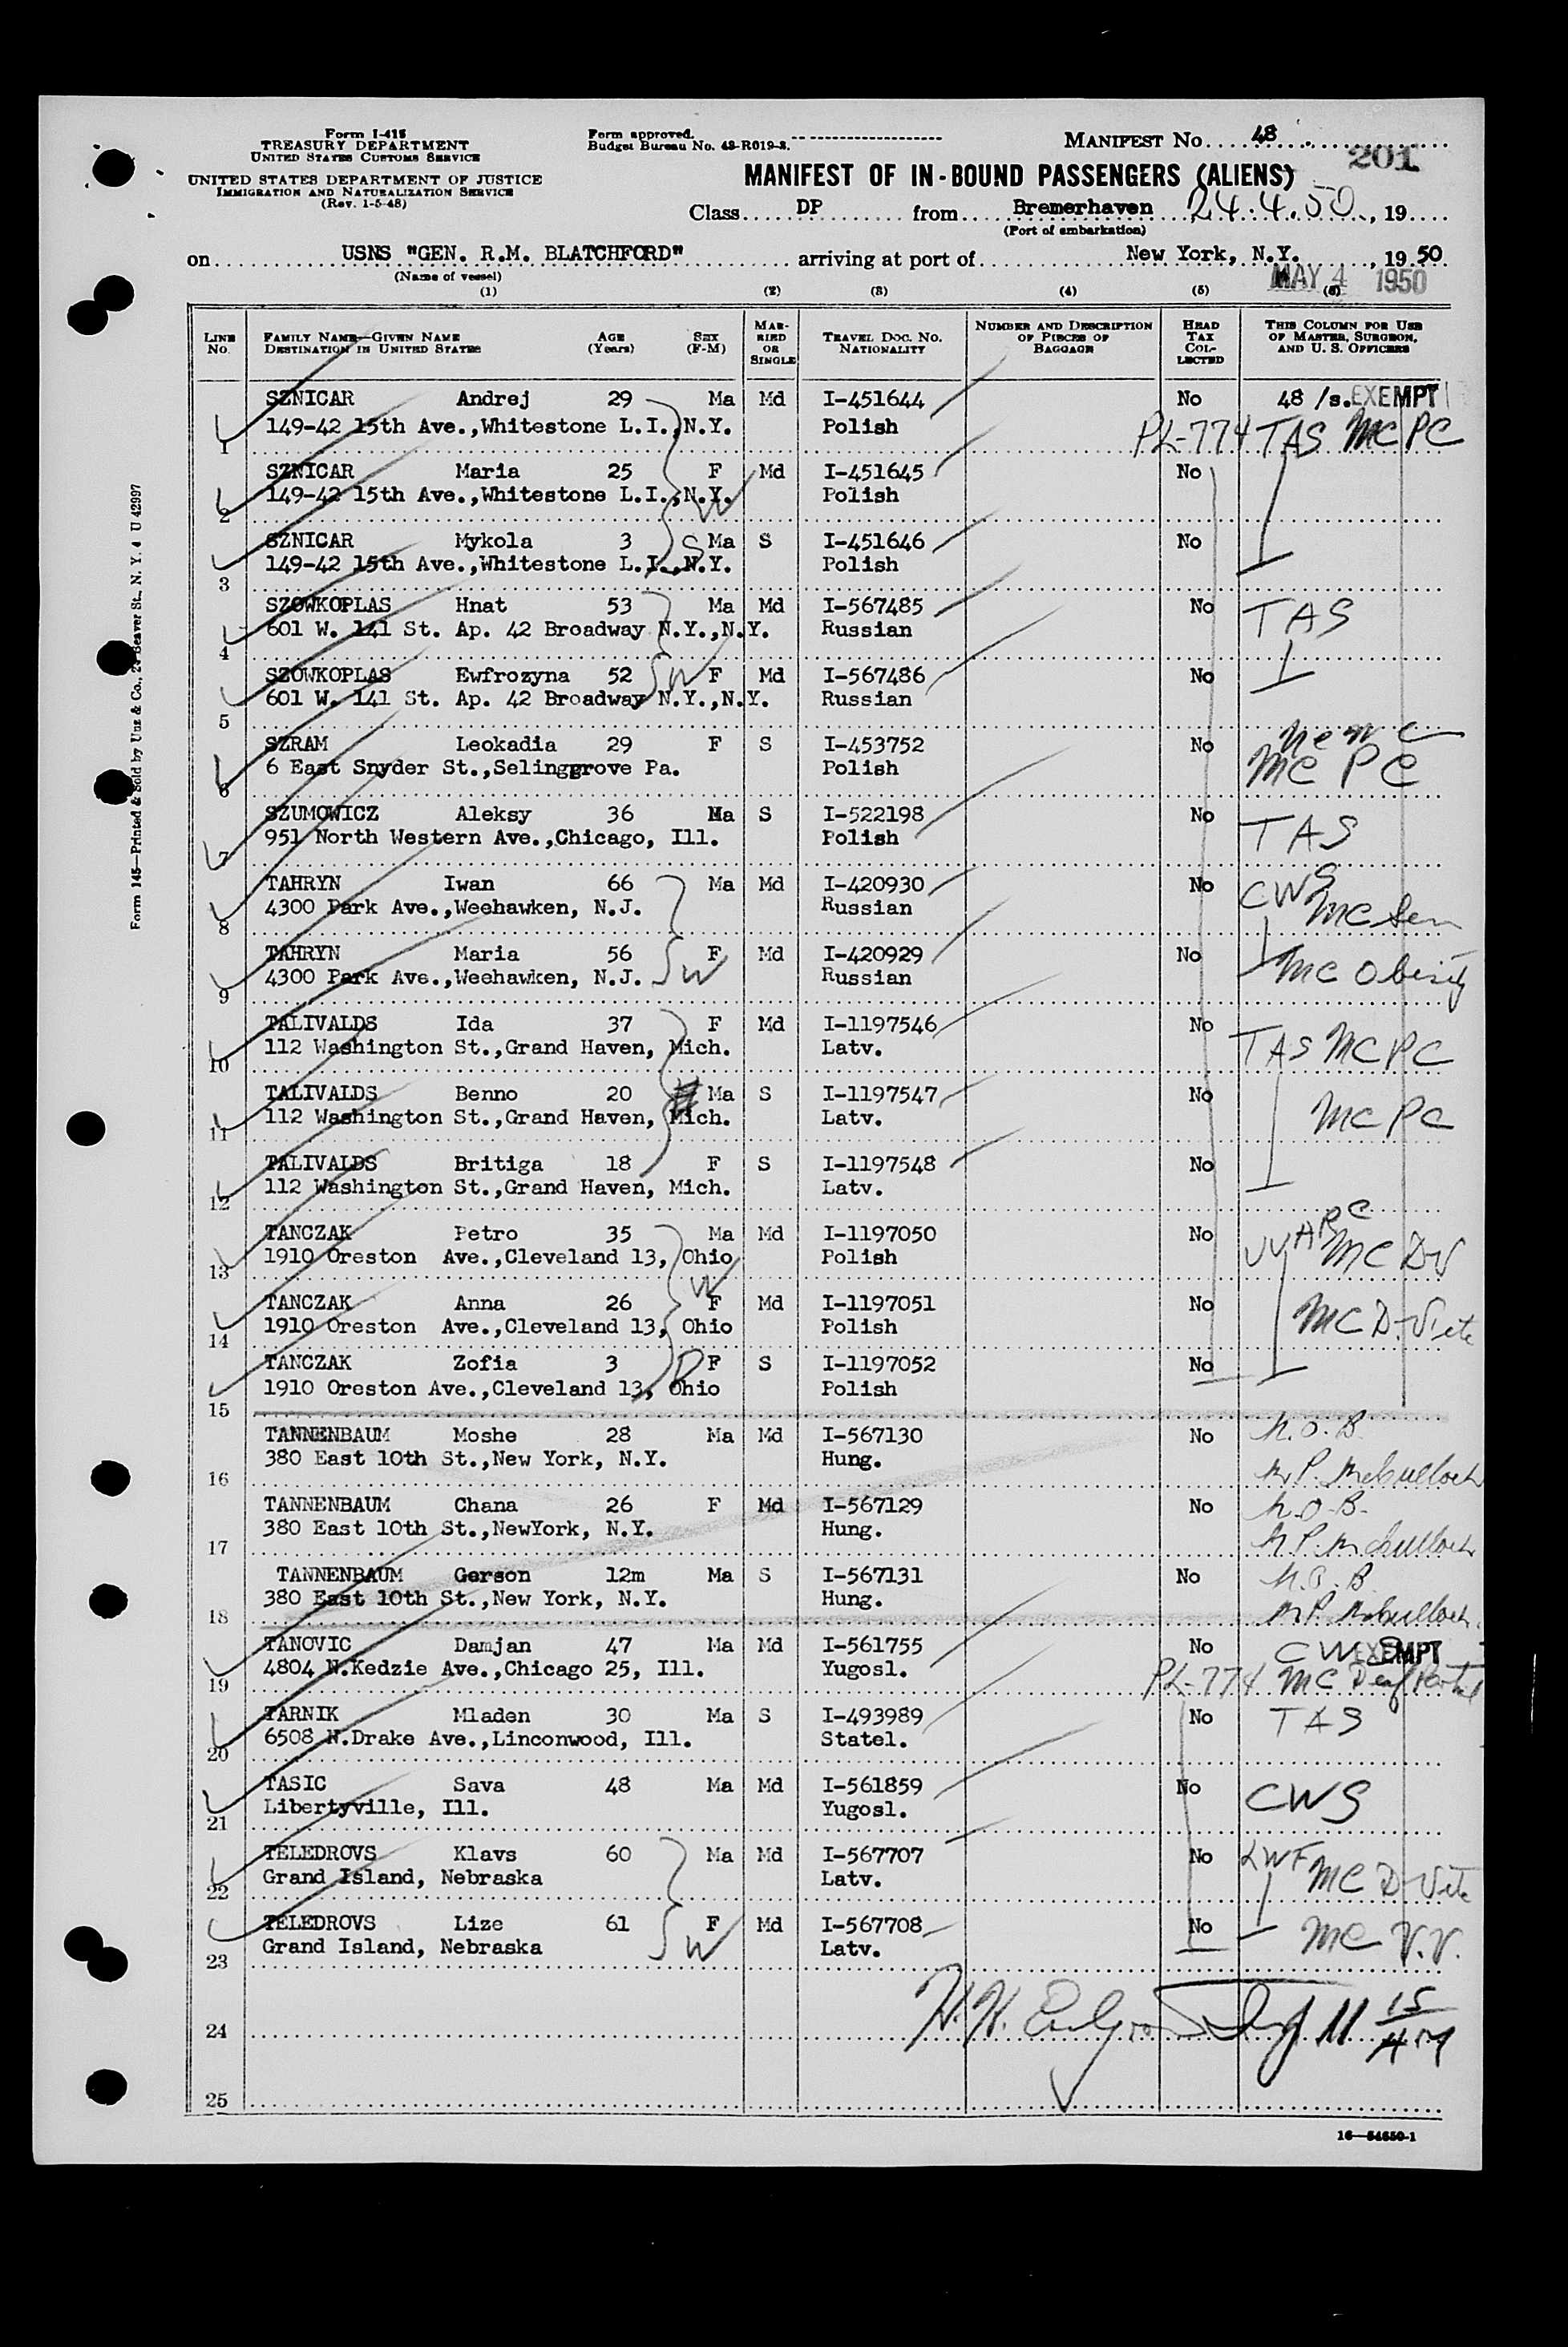 Form I-415
TREASURY DEPARTMENT
UNITED STATES CUSTOMS SERVICE
UNITED STATES DEPARTMENT OF JUSTICE
IMMIGRATION AND NATURALIZATION SERVICE
(Rev. 1-5-48)
Form approved.
Budget Bureau No. 43-R019-3.
MANIFEST No. 48
201
MANIFEST OF IN-BOUND PASSENGERS (ALIENS)
Class DP from Bremerhaven 24.4.50, 19
(Port of embarkation)
on USNS "GEN. R.M. BLATCHFORD" arriving at port of New York, N.Y., 19 50
(Name of vessel)
MAY 4 1950
(1) (2) (3) (4) (5) (6)
LINE No. FAMILY NAME—GIVEN NAME DESTINATION IN UNITED STATES AGE (Years) SEX (F-M) MARRIED OR SINGLE TRAVEL DOC. NO. NATIONALITY NUMBER AND DESCRIPTION OF PIECES OF BAGGAGE HEAD TAX COLLECTED THIS COLUMN FOR USE OF MASTER, SURGEON, AND U. S. OFFICERS
SZNICAR Andrej 29 Ma Md I-451644 No 48 /s. EXEMPT
1 149-42 15th Ave.,Whitestone L.I.,N.Y. Polish PL-774 TAS MC PC
SZNICAR Maria 25 F Md I-451645 No
2 149-42 15th Ave.,Whitestone L.I.,N.Y. W Polish
SZNICAR Mykola 3 S Ma S I-451646 No
3 149-42 15th Ave.,Whitestone L.I.,N.Y. Polish
SZOWKOPLAS Hnat 53 Ma Md I-567485 No TAS
4 601 W. 141 St. Ap. 42 Broadway N.Y.,N.Y. Russian
SZOWKOPLAS Ewfrozyna 52 W F Md I-567486 No
5 601 W. 141 St. Ap. 42 Broadway N.Y.,N.Y. Russian
SZRAM Leokadia 29 F S I-453752 No
6 6 East Snyder St.,Selinggrove Pa. Polish MC PC
SZUMOWICZ Aleksy 36 Ma S I-522198 No TAS
7 951 North Western Ave.,Chicago, Ill. Polish
TAHRYN Iwan 66 Ma Md I-420930 No CWS
8 4300 Park Ave.,Weehawken, N.J. Russian MC Sen
TAHRYN Maria 56 F Md I-420929 No
9 4300 Park Ave.,Weehawken, N.J. W Russian MC Obesity
TALIVALDS Ida 37 F Md I-1197546 No
10 112 Washington St.,Grand Haven, Mich. Latv. TAS MC PC
TALIVALDS Benno 20 Ma S I-1197547 No
11 112 Washington St.,Grand Haven, Mich. Latv. MC PC
TALIVALDS Britiga 18 F S I-1197548 No
12 112 Washington St.,Grand Haven, Mich. Latv.
TANCZAK Petro 35 Ma Md I-1197050 No
13 1910 Oreston Ave.,Cleveland 13, Ohio Polish MC DV
TANCZAK Anna 26 W F Md I-1197051 No
14 1910 Oreston Ave.,Cleveland 13, Ohio Polish MC D. Vite
TANCZAK Zofia 3 D F S I-1197052 No
15 1910 Oreston Ave.,Cleveland 13, Ohio Polish
TANNENBAUM Moshe 28 Ma Md I-567130 No N.O.B.
16 380 East 10th St.,New York, N.Y. Hung. McCulloch
TANNENBAUM Chana 26 F Md I-567129 No N.O.B.
17 380 East 10th St.,NewYork, N.Y. Hung. McCulloch
TANNENBAUM Gerson 12m Ma S I-567131 No N.O.B.
18 380 East 10th St.,New York, N.Y. Hung. McCulloch
TANOVIC Damjan 47 Ma Md I-561755 No CWS EXEMPT
19 4804 N.Kedzie Ave.,Chicago 25, Ill. Yugosl. PL-774 MC Deaf
TARNIK Mladen 30 Ma S I-493989 No TAS
20 6508 N.Drake Ave.,Linconwood, Ill. Statel.
TASIC Sava 48 Ma Md I-561859 No CWS
21 Libertyville, Ill. Yugosl.
TELEDROVS Klavs 60 Ma Md I-567707 No LWF
22 Grand Island, Nebraska Latv. MC D Vite
TELEDROVS Lize 61 F Md I-567708 No
23 Grand Island, Nebraska W Latv. MC V.V.
24
25
16—54650-1
Form 145—Printed & Sold by Unz & Co., 24 Beaver St., N. Y. 4 U 42997